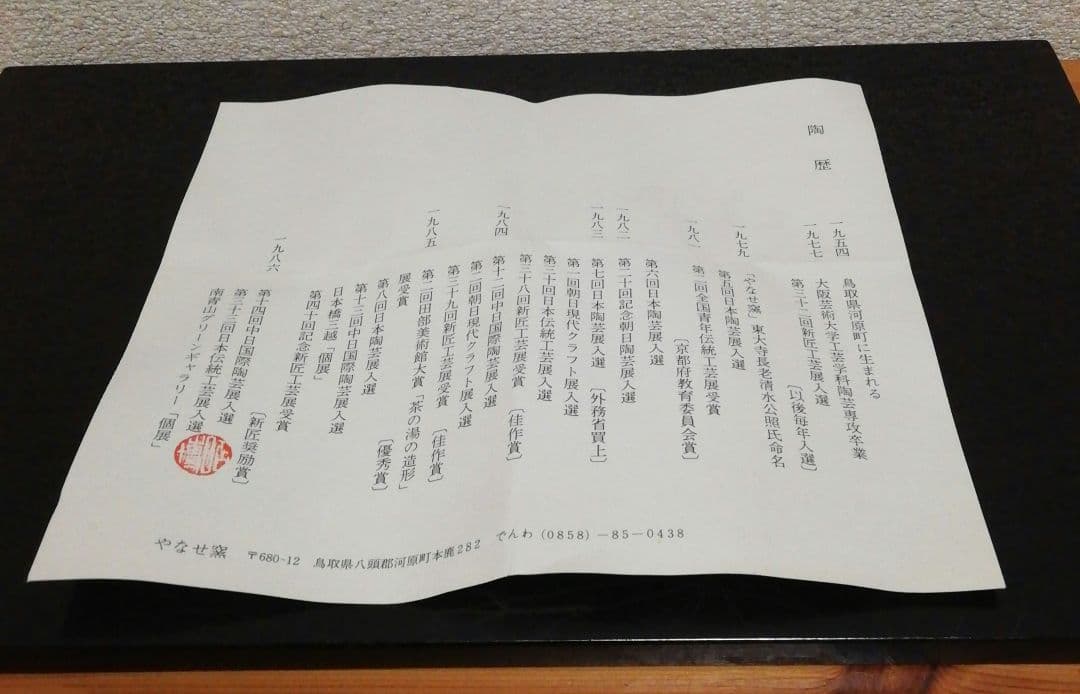 陶歴
一九五四 鳥取県河原町に生まれる
大阪芸術大学工芸学科陶芸専攻卒業
一九七七 第三十二回新匠工芸展入選
〔以後毎年入選〕
一九七九 「やなせ窯」東大寺長老清水公照氏命名
第五回日本陶芸展入選
一九八一 第二回全国青年伝統工芸展受賞
〔京都府教育委員会賞〕
第六回日本陶芸展入選
一九八二 第二十回記念朝日陶芸展入選
一九八三 第七回日本陶芸展入選 〔外務省買上〕
第一回朝日現代クラフト展入選
第三十回日本伝統工芸展入選
第三十八回新匠工芸展受賞 〔佳作賞〕
一九八四 第十二回中日国際陶芸展入選
第二回朝日現代クラフト展入選
第三十九回新匠工芸展受賞 〔佳作賞〕
一九八五 第二回田部美術館大賞「茶の湯の造形」
展受賞 〔優秀賞〕
第八回日本陶芸展入選
第十三回中日国際陶芸展入選
日本橋三越「個展」
第四十回記念新匠工芸展受賞
〔新匠奨励賞〕
一九八六 第十四回中日国際陶芸展入選
第三十三回日本伝統工芸展入選
南青山グリーンギャラリー「個展」
やなせ窯 〒680-12 鳥取県八頭郡河原町本鹿282 でんわ(0858)-85-0438